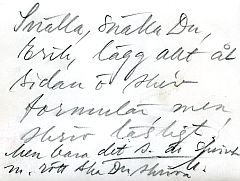 Snälla, snälla Du,
Erik, lägg allt åt
sidan o skriv
formulär men
skriv läsligt!
Men bara det s. de
m. rött ska Du skriva.